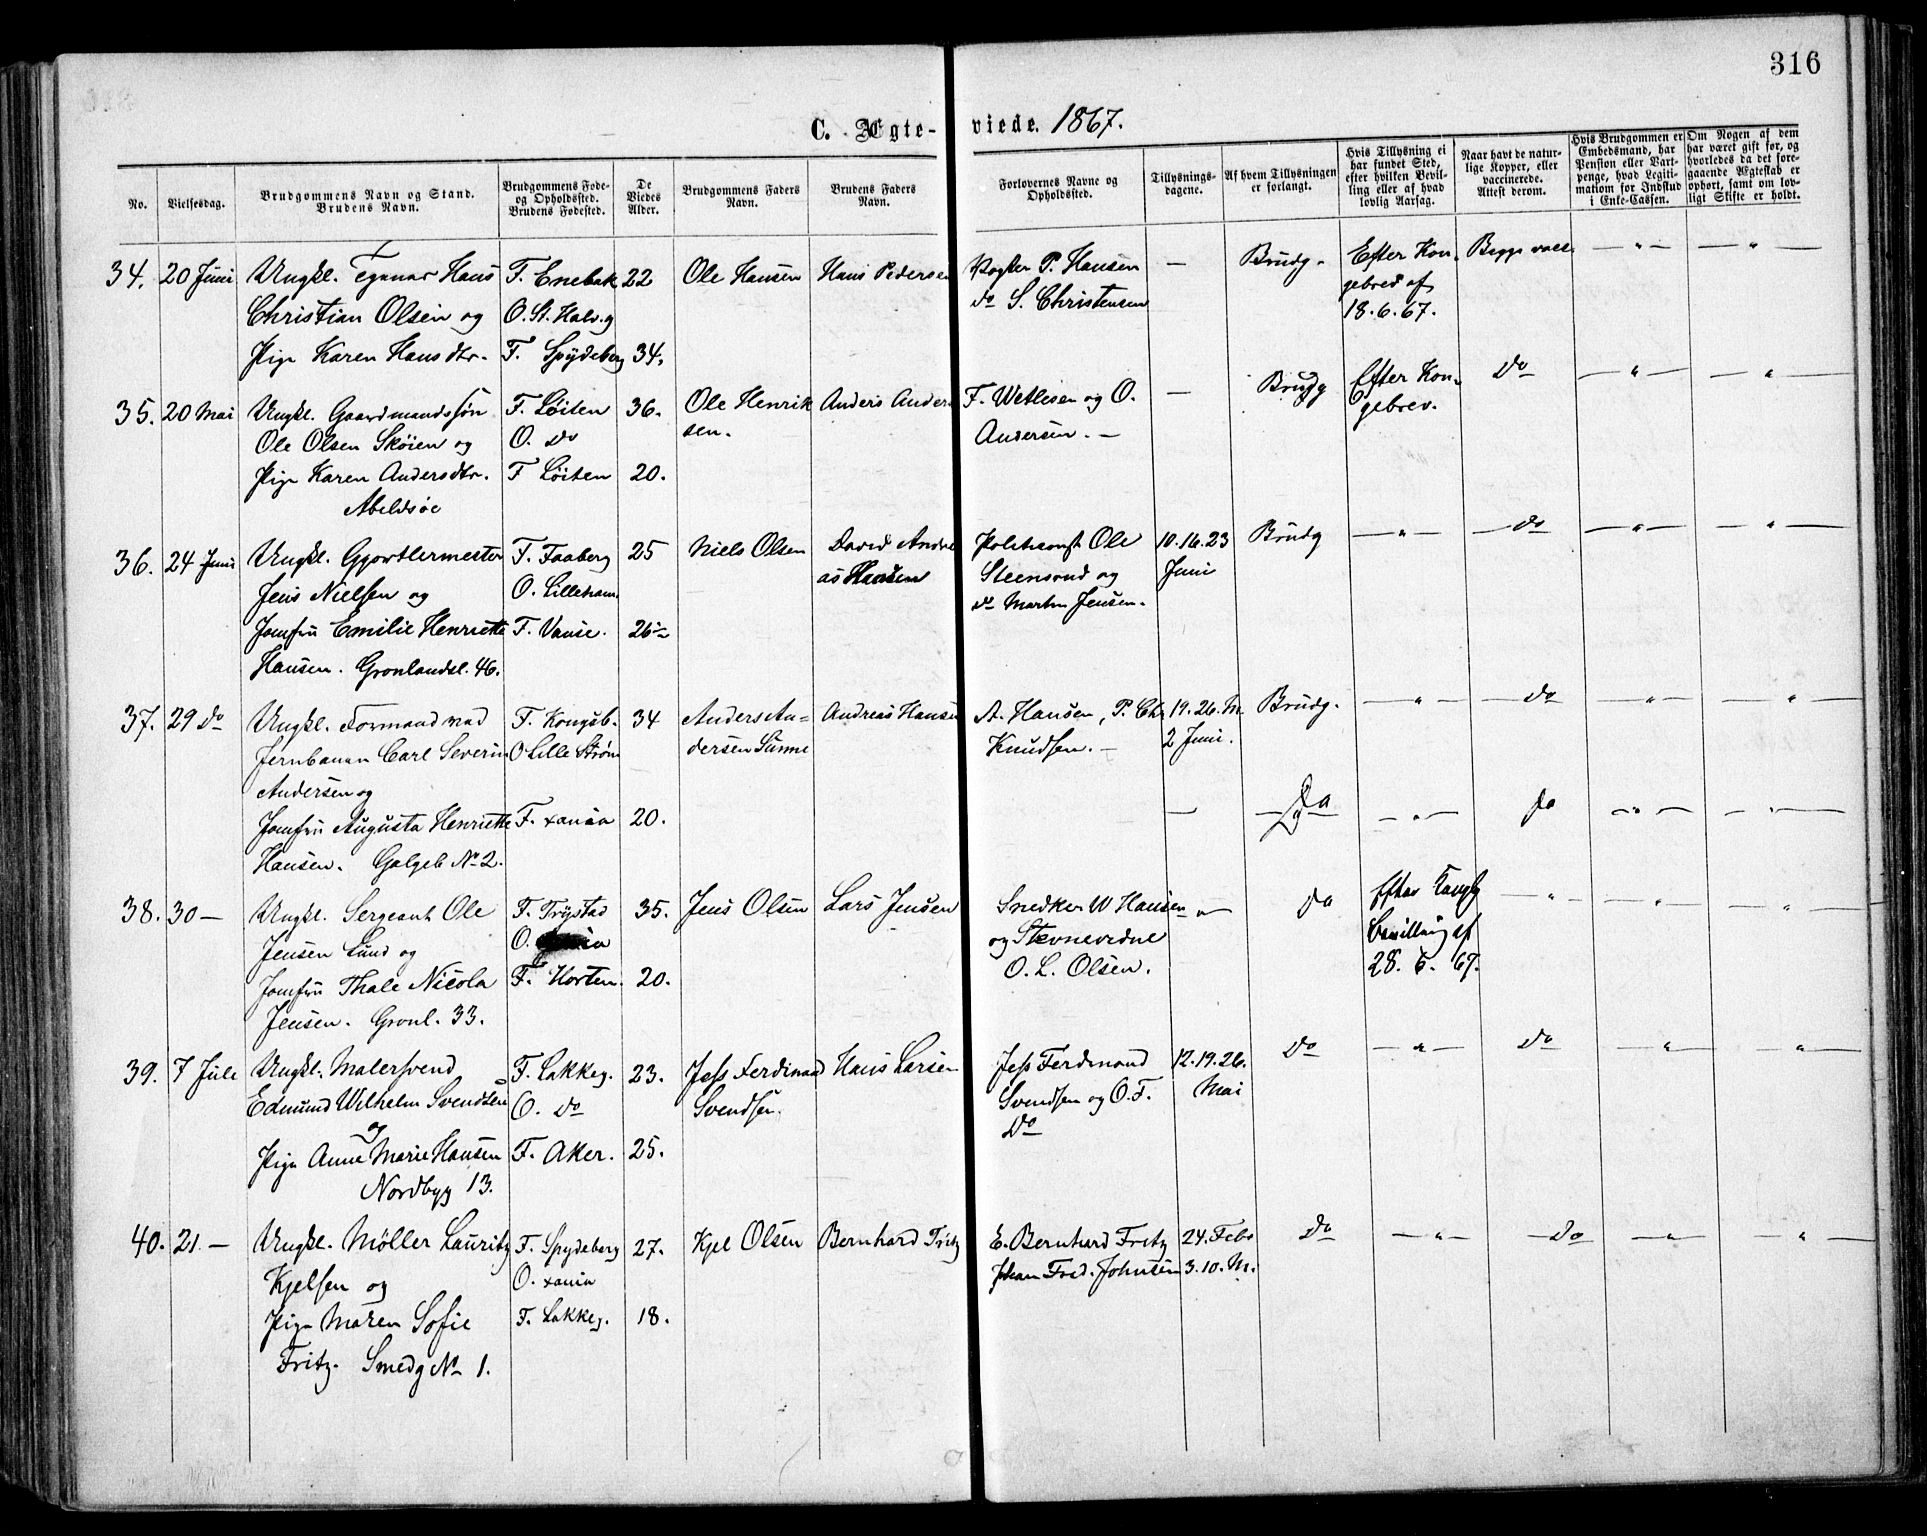 316
C. Ægte- viede. 1867.
No.
Vielsesdag.
Brudgommens Navn og Stand.
Brudens Navn.
Brudgommens Føde-
og Opholdssted.
Brudens Fødested.
De
Viedes
Alder.
Brudgommens Faders
Navn.
Brudens Faders
Navn.
Forlovernes Navne og
Opholdssted.
Tillysnings-
dagene.
Af hvem Tillysningen
er forlangt.
Hvis Tillysning ei
har fundet Sted,
efter hvilken Bevil-
ling eller af hvad
lovlig Aarsag.
Naar havt de natur-
lige Kopper, eller
vaccinerede.
Attest derom.
Hvis Brudgommen er
Embedsmand, har
Pension eller Vart-
penge, hvad Legiti-
mation for Indskud
i Enke-Cassen.
Om Nogen af dem
har været gift før, og
hvorledes da det fore-
gaaende Ægteskab er
ophørt, samt om lov-
ligt Skifte er holdt.
34. 20 Juni Ungkl. Hans F. Enebak 22 Ole Hansen Hans Pedersen P. Hansen — Brudg. Efter Kon- Begge vacc. — " — — " —
Christian Olsen og O. St. Halv.g do S. Christensen gebrev af
18.6.67.
Pige Karen Hansdtr. F. Spydeberg 34.
35. 20 Mai Ungkl. Gaardmandssøn F. Löiten 36. Ole Henrik Anders Ander- F. Wetlesen og O. — Brudg Efter Kon- do — " — — " —
Ole Olsen Skøien og O. do sen. Andersen. — gebrev.
Pige Karen Andersdtr. F Löiten 20.
Abeldsøe
36. 24 Juni Ungkl. Gjørtlermester F. Faaberg 25 Niels Olsen David Andre Ole 10.16.23 Brudg — " — — do — — " — — " —
Jens Nielsen og O. Lilleham. as Hansen Steensrud og Juni
do Martin Jensen.
Jomfru Emilie Henriette F. Vanse. 26
Hansen. Gronlandsl. 46.
37. 29 do Ungkl. Formand ved F. Kongsb. 34 Anders An= Andreas Hansen A. Hansen, P. Chr 19.26.M. Brudg. — " — — do — — " — — " —
Jernbanen Carl Severin O Lille Strøm dersen Sünne Knudsen. — 2 Juni.
Andersen og
Jomfru Augusta Henriette F. xania 20. — do — " — do — " — — " —
Hansen. Galgeb No 2.
38. 30 — Ungkl. Sergeant Ole F. Trystad 35. Jens Olsen Lars Jensen Snedker W Hansen — " — do Efter Kongl — " — — " — — " —
Jensen Lund og O. og Stevnevidne Bevilling af
O. L. Olsen. 28. 6. 67.
Jomfru Thale Nicola F. Horten. 20.
Jensen. Gronl. 33.
39. 7 Juli Ungkl. Malersvend F. Lakkeg. 23. Jess Ferdinand Hans Larsen Jess Ferdinand 12.19.26. do — " — do — " — — " —
Edmund Wilhelm Svendsen O. do Svendsen. Svendsen og O.F. Mai
og do
Pige Anne Marie Hansen F. Aker. 25.
Nordbyg 13.
40. 21 — Ungkl. Møller Lauritz F. Spydeberg 27. Kjel Olsen Bernhard Fritz E. Bernhard Fritz 24. Feb. do — " — — do — — " — — " —
Kjelsen og O. xania Johan Fred. Johnsen 3.10.M.
Pige Maren Sofie F. Lakkeg. 18.
Fritz. Smedg No 1.